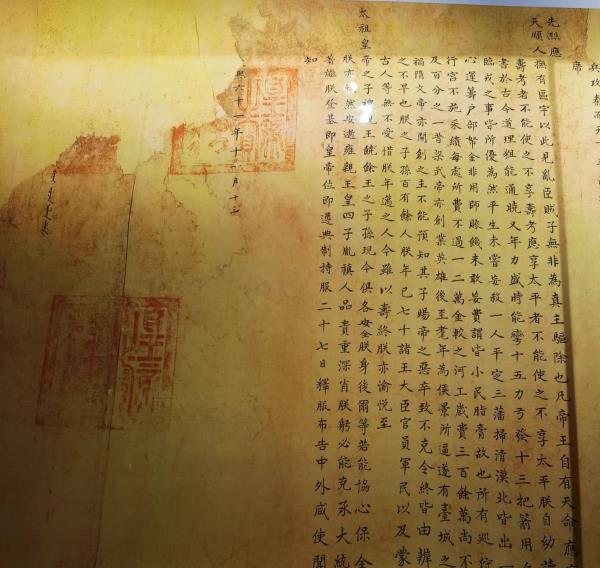 兵攻
席
先烈應
天順人
撫有區宇以此見亂臣賊子無非為真主驅除也凡帝王自有天命應
壽考者不能使之不享壽考應享太平者不能使之不享太平朕自幼讀
書於古今道理粗能通曉又年力盛時能彎十五力弓發十三把箭用
臨戎之事皆所優為然平生未嘗妄殺一人平定三藩掃清漠北皆出一
心運籌戶部帑金非用師賑饑未敢妄費謂皆小民脂膏故也所有巡狩
行宮不施采繢每處所費不過一二萬金較之河工歲費三百餘萬尚不
及百分之一昔梁武帝亦創業英雄後至耄年為侯景所逼遂有臺城之
禍隋文帝亦開創之主不能預知其子煬帝之惡卒致不克令終皆由辨
之不早也朕之子孫百有餘人朕年已七十諸王大臣官員軍民以及蒙
古人等無不愛惜朕年邁之人今雖以壽終朕亦愉悅至
太祖皇帝之子禮親王饒餘王之子孫現今俱各安全朕身後爾等若能協心保全
朕亦欣然安逝雍親王皇四子胤禛人品貴重深肖朕躬必能克承大統
著繼朕登基即皇帝位即遵典制持服二十七日釋服布告中外咸使聞
知
熙六十一年十一月十三